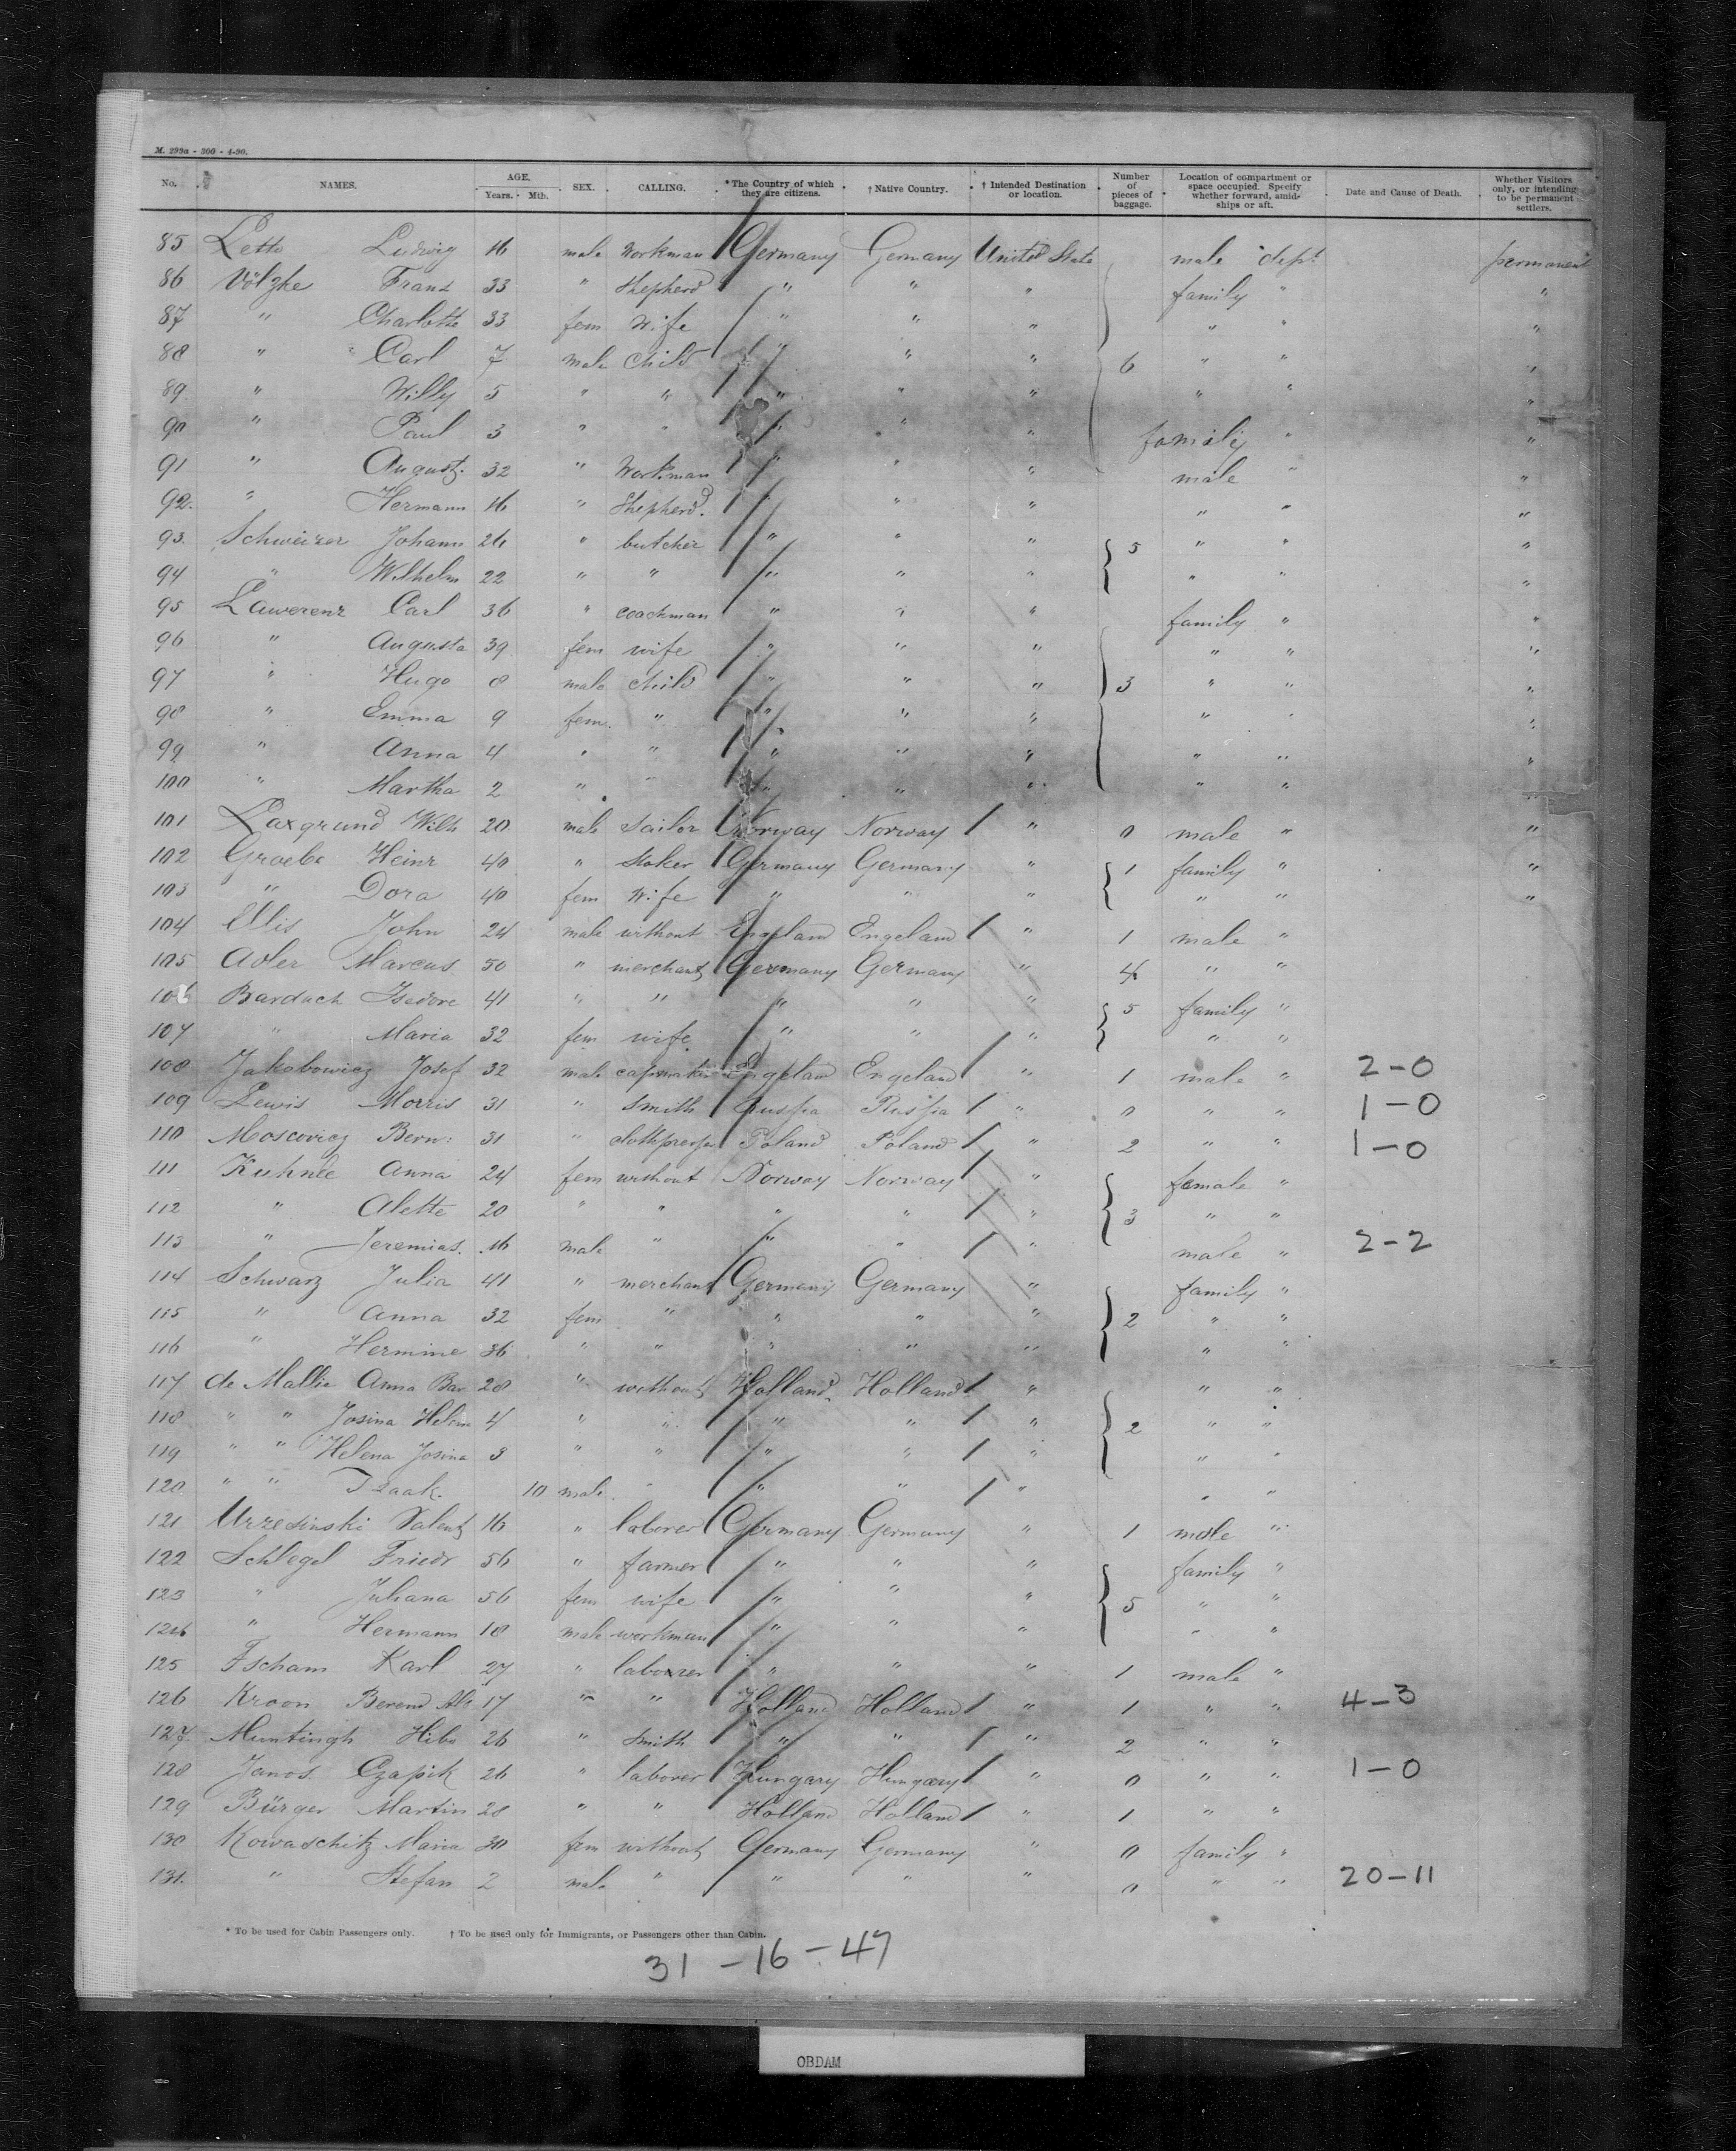 M. 299a - 300 - 4-90.
No. NAMES. AGE. Years. Mth. SEX. CALLING. * The Country of which they are citizens. † Native Country. † Intended Destination or location. Number of pieces of baggage. Location of compartment or space occupied. Specify whether forward, amidships or aft. Date and Cause of Death. Whether Visitors only, or intending to be permanent settlers.
85 Ludwig 16 male Workman Germany Germany United State male dept permanent
86 Völzke Franz 33 " Shepherd " " " family " "
87 " Charlotte 33 fem Wife " " " " " "
88 " Carl 7 male child " " " 6 " " "
89. " Willy 5 " " " " " " " "
90 " Paul 3 " " " " " family " "
91 " August. 32 " Workman " " " male " "
92. " Hermann 16 " Shepherd. " " " " " "
93. Schweizer Johann 26 " butcher " " " 5 " " "
94 " Wilhelm 22 " " " " " " " "
95 Lawerenz Carl 36 " coachman " " " family " "
96 " Augusta 39 fem wife " " " " " "
97 " Hugo 8 male child " " " 3 " " "
98 " Emma 9 fem. " " " " " " "
99 " Anna 4 " " " " " " " "
100 " Martha 2 " " " " " " " "
101 Laxgrund Wilh 20 male Sailor Norway Norway " 0 male " "
102 Groebe Heinr 40 " Stoker Germany Germany " 1 family " "
103 " Dora 40 fem Wife " " " " " "
104 Ellis John 24 male without Engeland Engeland " 1 male "
105 Adler Marcus 50 " merchant Germany Germany " 4 " "
106 Bardach Isedore 41 " " " " " 5 family "
107 " Maria 32 fem wife " " " " "
108 Jakobowicz Josef 32 male capmaker Engeland Engeland " 1 male " 2-0
109 Lewis Morris 31 " Smith Russia Russia " 0 " " 1-0
110 Moscovicz Bern: 31 " Poland Poland " 2 " " 1-0
111 Kuhnle Anna 24 fem without Norway Norway " female "
112 " Alette 20 " " " " " 3 " "
113 " Jeremias. 16 male " " " " male " 2-2
114 Schwarz Julia 41 " merchant Germany Germany " family "
115 " Anna 32 fem " " " " 2 " "
116 " Hermine 36 " " " " " " "
117 de Mallie Anna Bar 28 " without Holland Holland " " "
118 " " Josina Helena 4 " " " " " 2 " "
119 " " Helena Josina 3 " " " " " " "
120 " " Izaak. 10 male " " " " " "
121 Urzedinski Valent 16 " laborer Germany Germany " 1 male "
122 Schlegel Friedr 56 " farmer " " " family "
123 " Juliana 56 fem wife " " " 5 " "
124 " Hermann 18 male workman " " " " "
125 Tscham Karl 27 " laborer " " " 1 male "
126 Kroon Berend 17 " " Holland Holland " 1 " " 4-3
127. Muntingh Hibo 26 " Smith " " " 2 " "
128 Janos Czapik 26 " laborer Hungary Hungary " 0 " " 1-0
129 Bürger Martin 28 " " Holland Holland " 1 " "
130 Kowaschitz Maria 30 fem without Germany Germany " 0 family "
131. " Stefan 2 male " " " " 0 " " 20-11
* To be used for Cabin Passengers only. † To be used only for Immigrants, or Passengers other than Cabin.
31 - 16 - 47
OBDAM